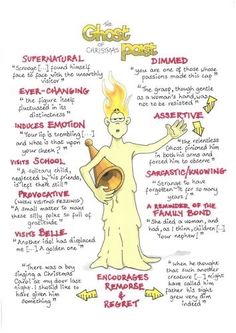 THE
Ghost
OF
CHRISTMAS
past
SUPERNATURAL
"Scrooge [...] found himself
face to face with the unearthly
visitor"
EVER-CHANGING
"the figure itself
fluctuated in its
distinctness"
INDUCES EMOTION
"Your lip is trembling [...]
and what is that upon
your cheek?"
VISITS SCHOOL
"A solitary child,
neglected by his friends,
is left there still"
PROVOCATIVE
(WHEN VISITING FEZZIWIG)
"A small matter to make
these silly folks so full of
gratitude"
VISITS BELLE
"Another idol has displaced
me [...] A golden one"
"There was a boy
singing a Christmas
Carol at my door last
night. I should like to
have given him
something"
DIMMED
"you are one of those whose
passions made this cap"
"The grasp, though gentle
as a woman's hand, was
not to be resisted"
ASSERTIVE
"the relentless
Ghost pinioned him
in both his arms and
forced him to observe"
SARCASTIC/KNOWING
"Strange to have
forgotten it for so many
years"
A REMINDER OF THE
FAMILY BOND
"She died a woman, and
had, as I think, children [...]
Your nephew"
"when he thought
that such another
creature [...] might
have called him
father his sight
grew very dim
indeed"
ENCOURAGES
REMORSE &
REGRET